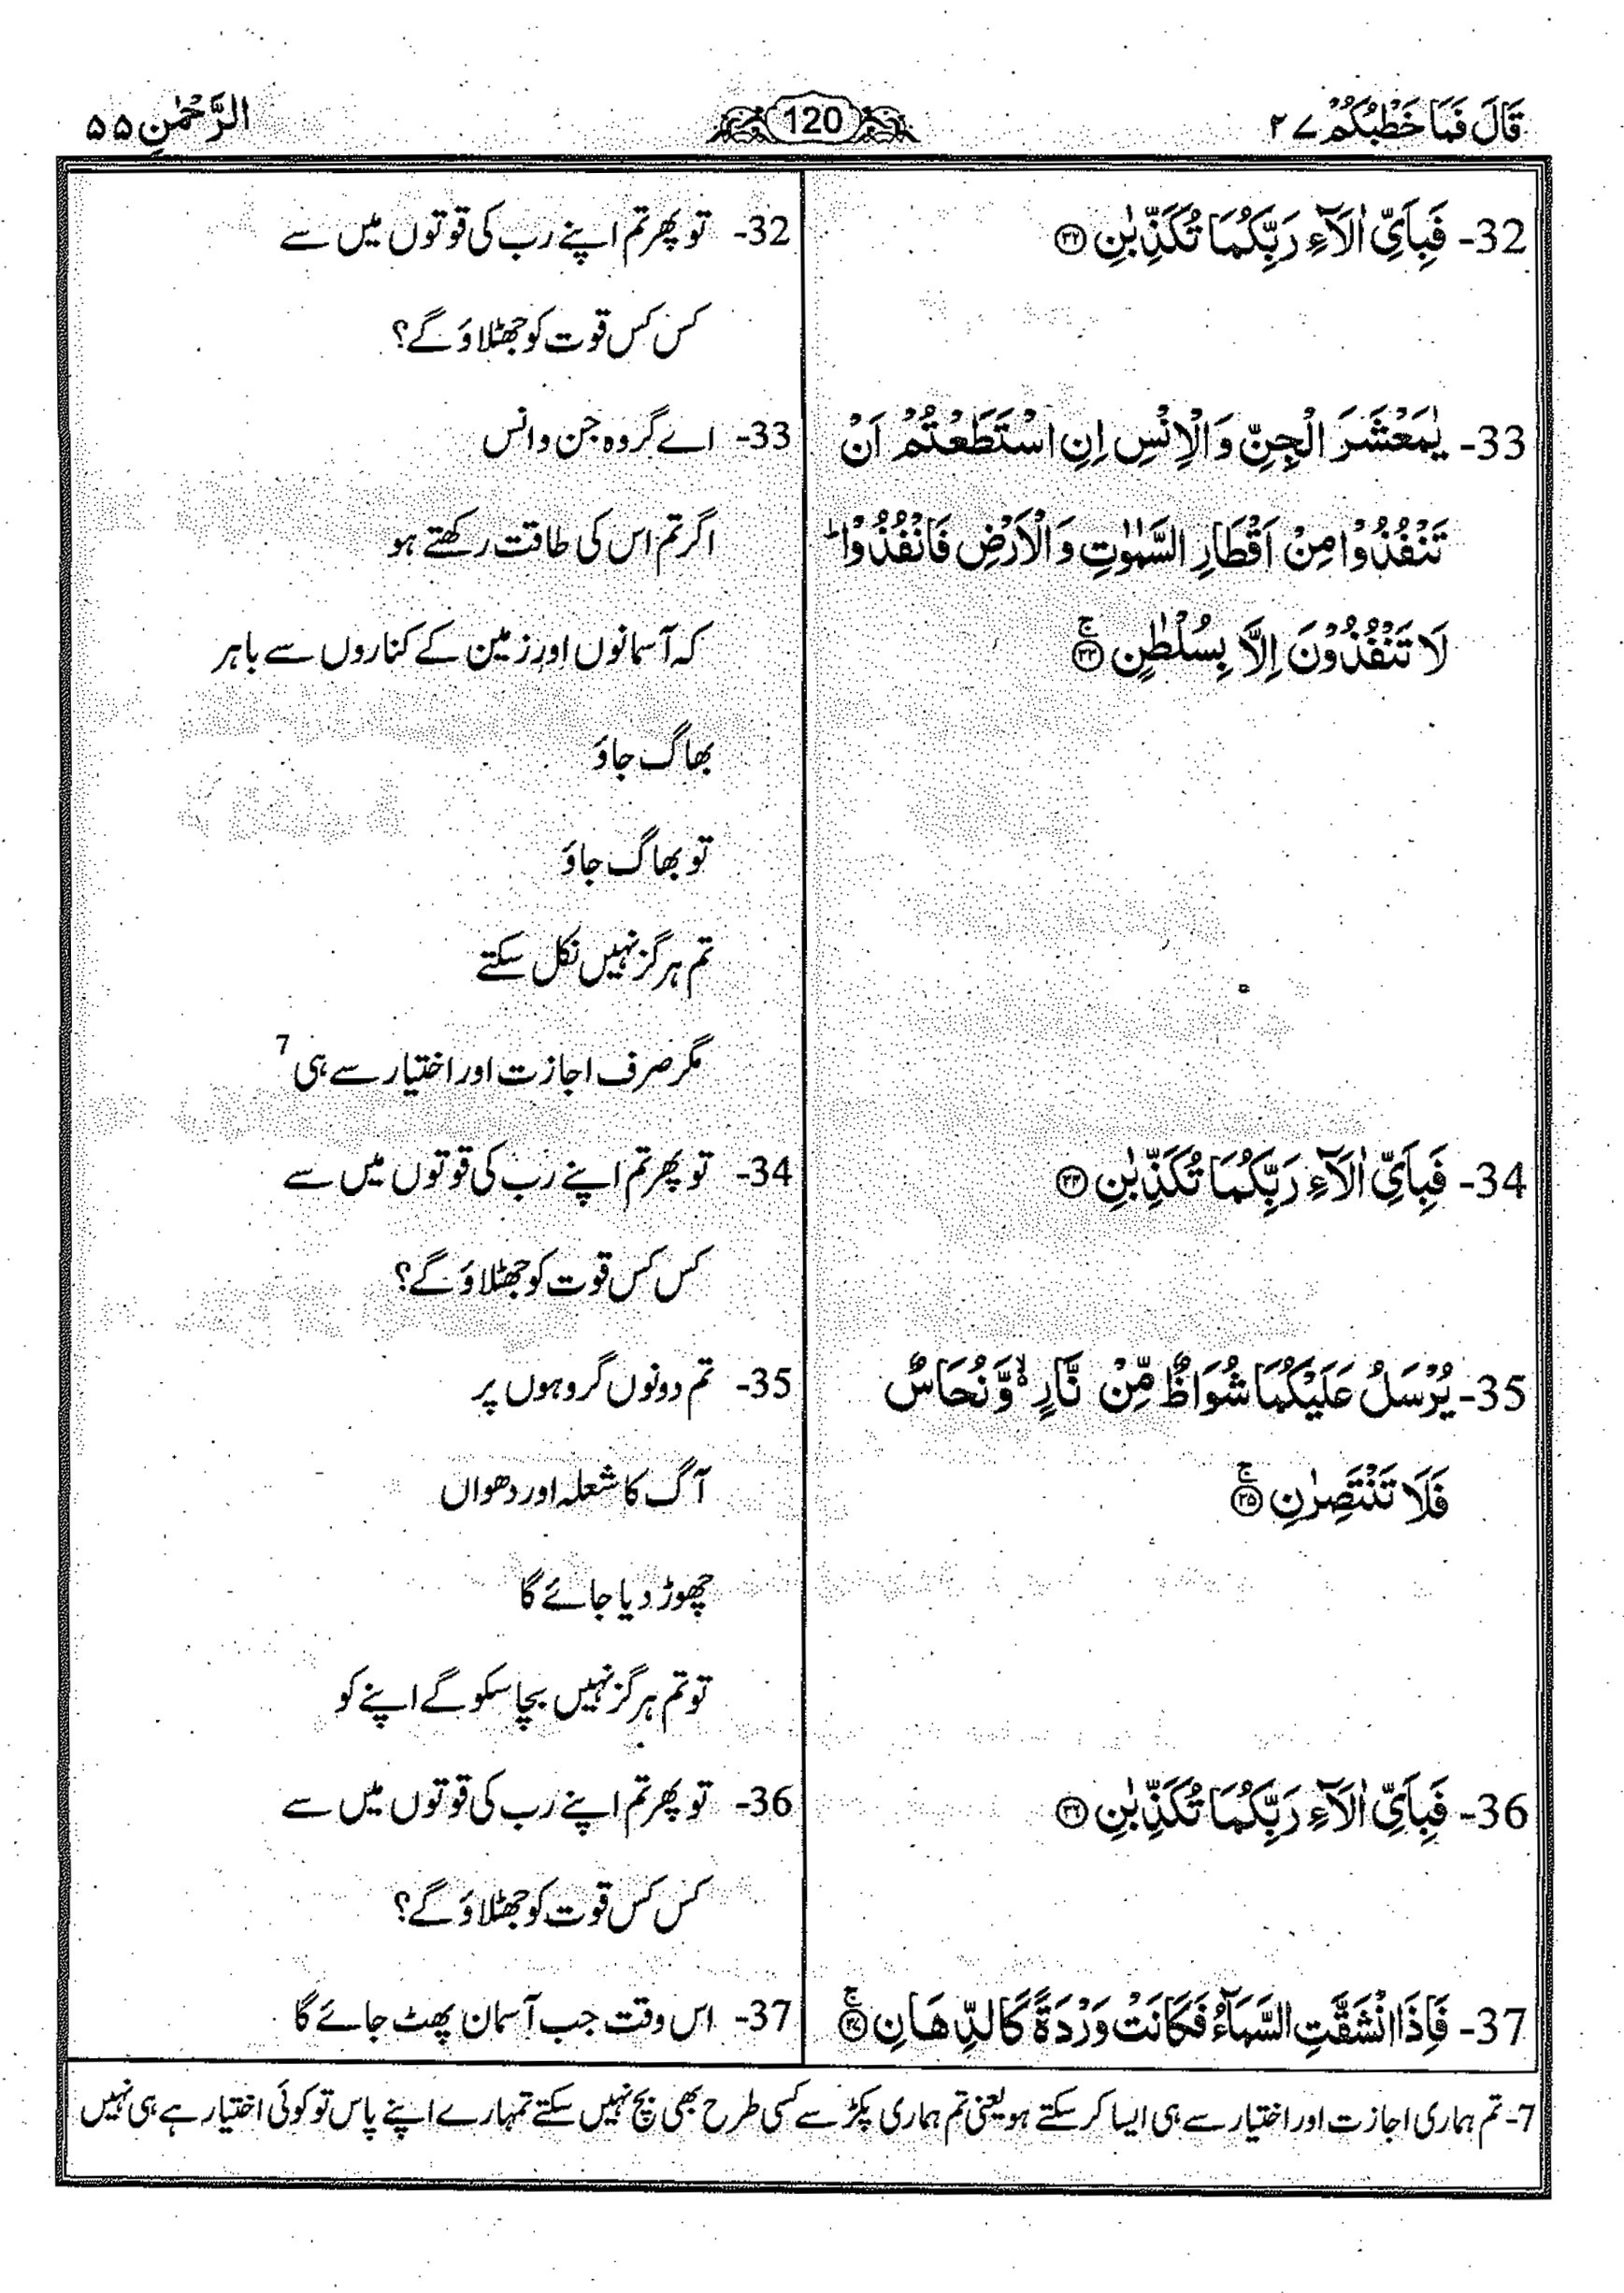 قَالَ فَمَا خَطْبُكُمْ ٢٧
120
الرَّحْمٰنِ ٥٥
32- فَبِاَيِّ اٰلَآءِ رَبِّكُمَا تُكَذِّبٰنِ ﴿۳۲﴾
33- يٰمَعْشَرَ الْجِنِّ وَالْاِنْسِ اِنِ اسْتَطَعْتُمْ اَنْ
تَنْفُذُوْا مِنْ اَقْطَارِ السَّمٰوٰتِ وَالْاَرْضِ فَانْفُذُوْا ؕ
لَا تَنْفُذُوْنَ اِلَّا بِسُلْطٰنٍ ۚ﴿۳۳﴾
34- فَبِاَيِّ اٰلَآءِ رَبِّكُمَا تُكَذِّبٰنِ ﴿۳۴﴾
35- يُرْسَلُ عَلَيْكُمَا شُوَاظٌ مِّنْ نَّارٍ ۙ وَّنُحَاسٌ
فَلَا تَنْتَصِرٰنِ ۚ﴿۳۵﴾
36- فَبِاَيِّ اٰلَآءِ رَبِّكُمَا تُكَذِّبٰنِ ﴿۳۶﴾
37- فَاِذَا انْشَقَّتِ السَّمَآءُ فَكَانَتْ وَرْدَةً كَالدِّهَانِ ۚ﴿۳۷﴾
32- تو پھر تم اپنے رب کی قوتوں میں سے
کس کس قوت کو جھٹلاؤ گے؟
33- اے گروہ جن و انس
اگر تم اس کی طاقت رکھتے ہو
کہ آسمانوں اور زمین کے کناروں سے باہر
بھاگ جاؤ
تو بھاگ جاؤ
تم ہرگز نہیں نکل سکتے
مگر صرف اجازت اور اختیار سے ہی 7
34- تو پھر تم اپنے رب کی قوتوں میں سے
کس کس قوت کو جھٹلاؤ گے؟
35- تم دونوں گروہوں پر
آگ کا شعلہ اور دھواں
چھوڑ دیا جائے گا
تو تم ہرگز نہیں بچا سکو گے اپنے کو
36- تو پھر تم اپنے رب کی قوتوں میں سے
کس کس قوت کو جھٹلاؤ گے؟
37- اس وقت جب آسمان پھٹ جائے گا
7- تم ہماری اجازت اور اختیار سے ہی ایسا کر سکتے ہو یعنی تم ہماری پکڑ سے کسی طرح بھی بچ نہیں سکتے تمہارے اپنے پاس تو کوئی اختیار ہے ہی نہیں